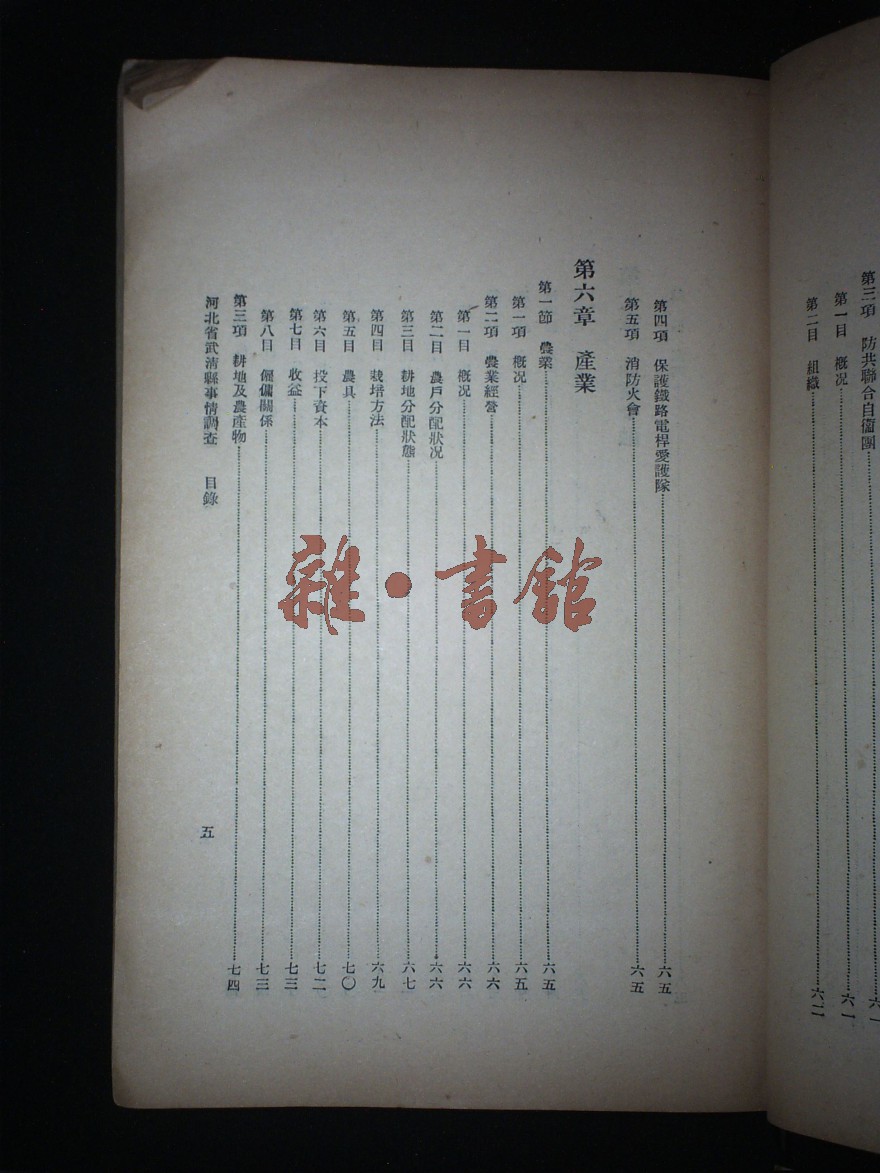 第三項 防共聯合自衞團……六一
第一目 概况……六一
第二目 組織……六二
第四項 保護鐵路電桿愛護隊……六五
第五項 消防火會……六五
第六章 產業
第一節 農業……六五
第一項 概况……六五
第二項 農業經營……六六
第一目 概况……六六
第二目 農戶分配狀况……六六
第三目 耕地分配狀態……六七
第四目 栽培方法……六九
第五目 農具……七〇
第六目 投下資本……七二
第七目 收益……七三
第八目 僱傭關係……七三
第三項 耕地及農產物……七四
河北省武清縣事情調查 目錄 五
雜·書館